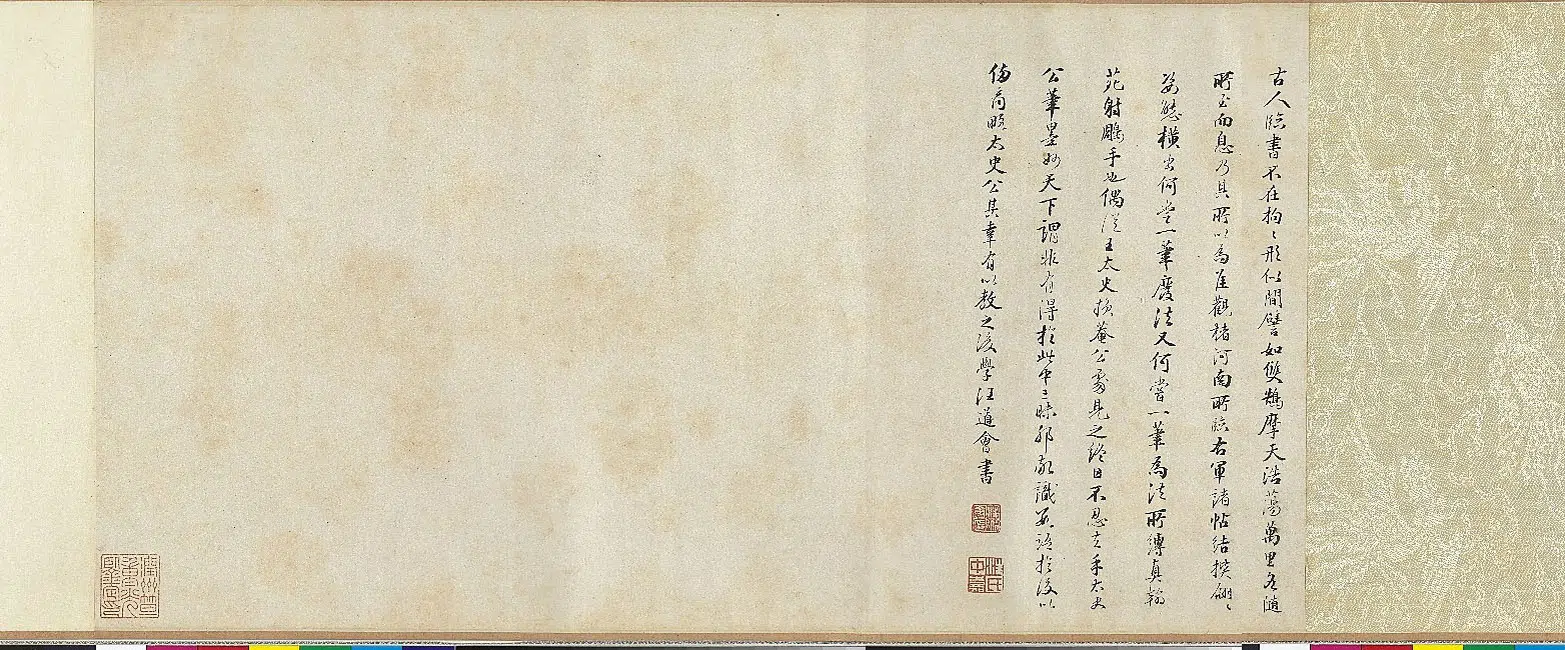 古人臨書不在拘々形似間譬如雙鵠摩天浩蕩萬里各隨
所至而息乃其所以為佳觀褚河南所臨右軍諸帖結撰翩々
姿態橫出何嘗一筆廢法又何嘗一筆為法所縛真翰
苑射鵰手也偶從王太史損菴公處見之終日不忍去手太史
公筆墨妙天下謂非有得於此中三昧耶敬識數語於後以
俻商略太史公其幸有以教之後學汪道會書
汪氏